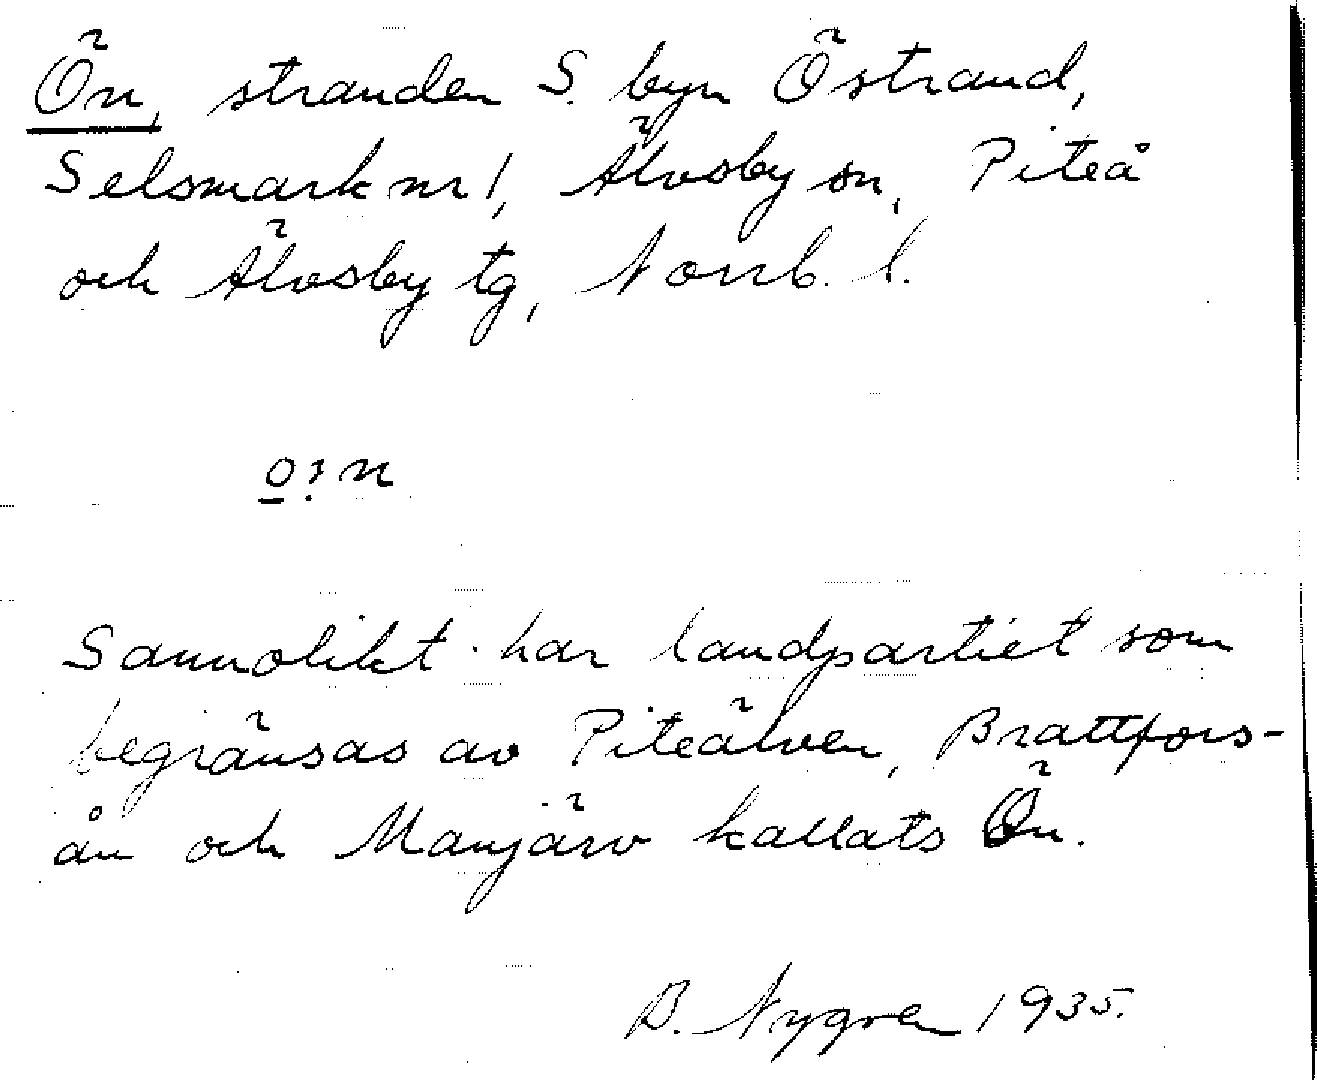 Ön, stranden S. byn Östrand,
Selsmark nr 1, Älvsby sn, Piteå
och Älvsby tg, Norrb. l.
o̲:n
Sannolikt har landpartiet som
begränsas av Piteälven, Brattfors-
ån och Manjärv kallats Ön.
B. Nygren 1935.